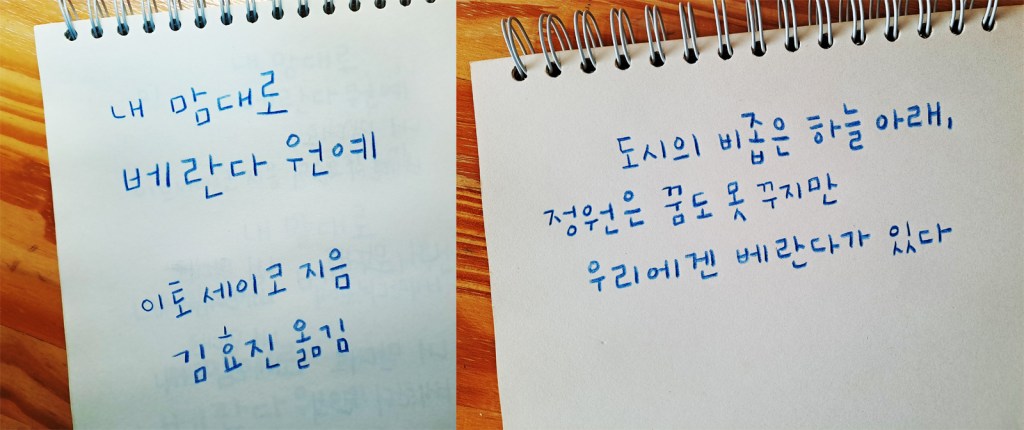 내 맘대로
베란다 원예
이토 세이로 지음
김효진 옮김
도시의 비좁은 하늘 아래,
정원은 꿈도 못 꾸지만
우리에겐 베란다가 있다